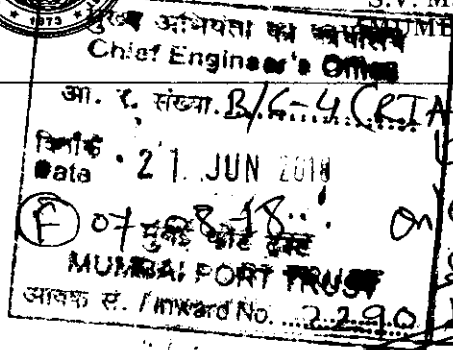 1973
S.V. M
मुख्य अभियंता का कार्यालय
MUMB
Chief Engineer's Office
आ. र. संख्या. B/C-4 (RIA
दिनांक
Date 21 JUN 2018
F 07-8-18 On
मुंबई पोर्ट ट्रस्ट
MUMBAI PORT TRUST
आवक सं. / Inward No. 2290